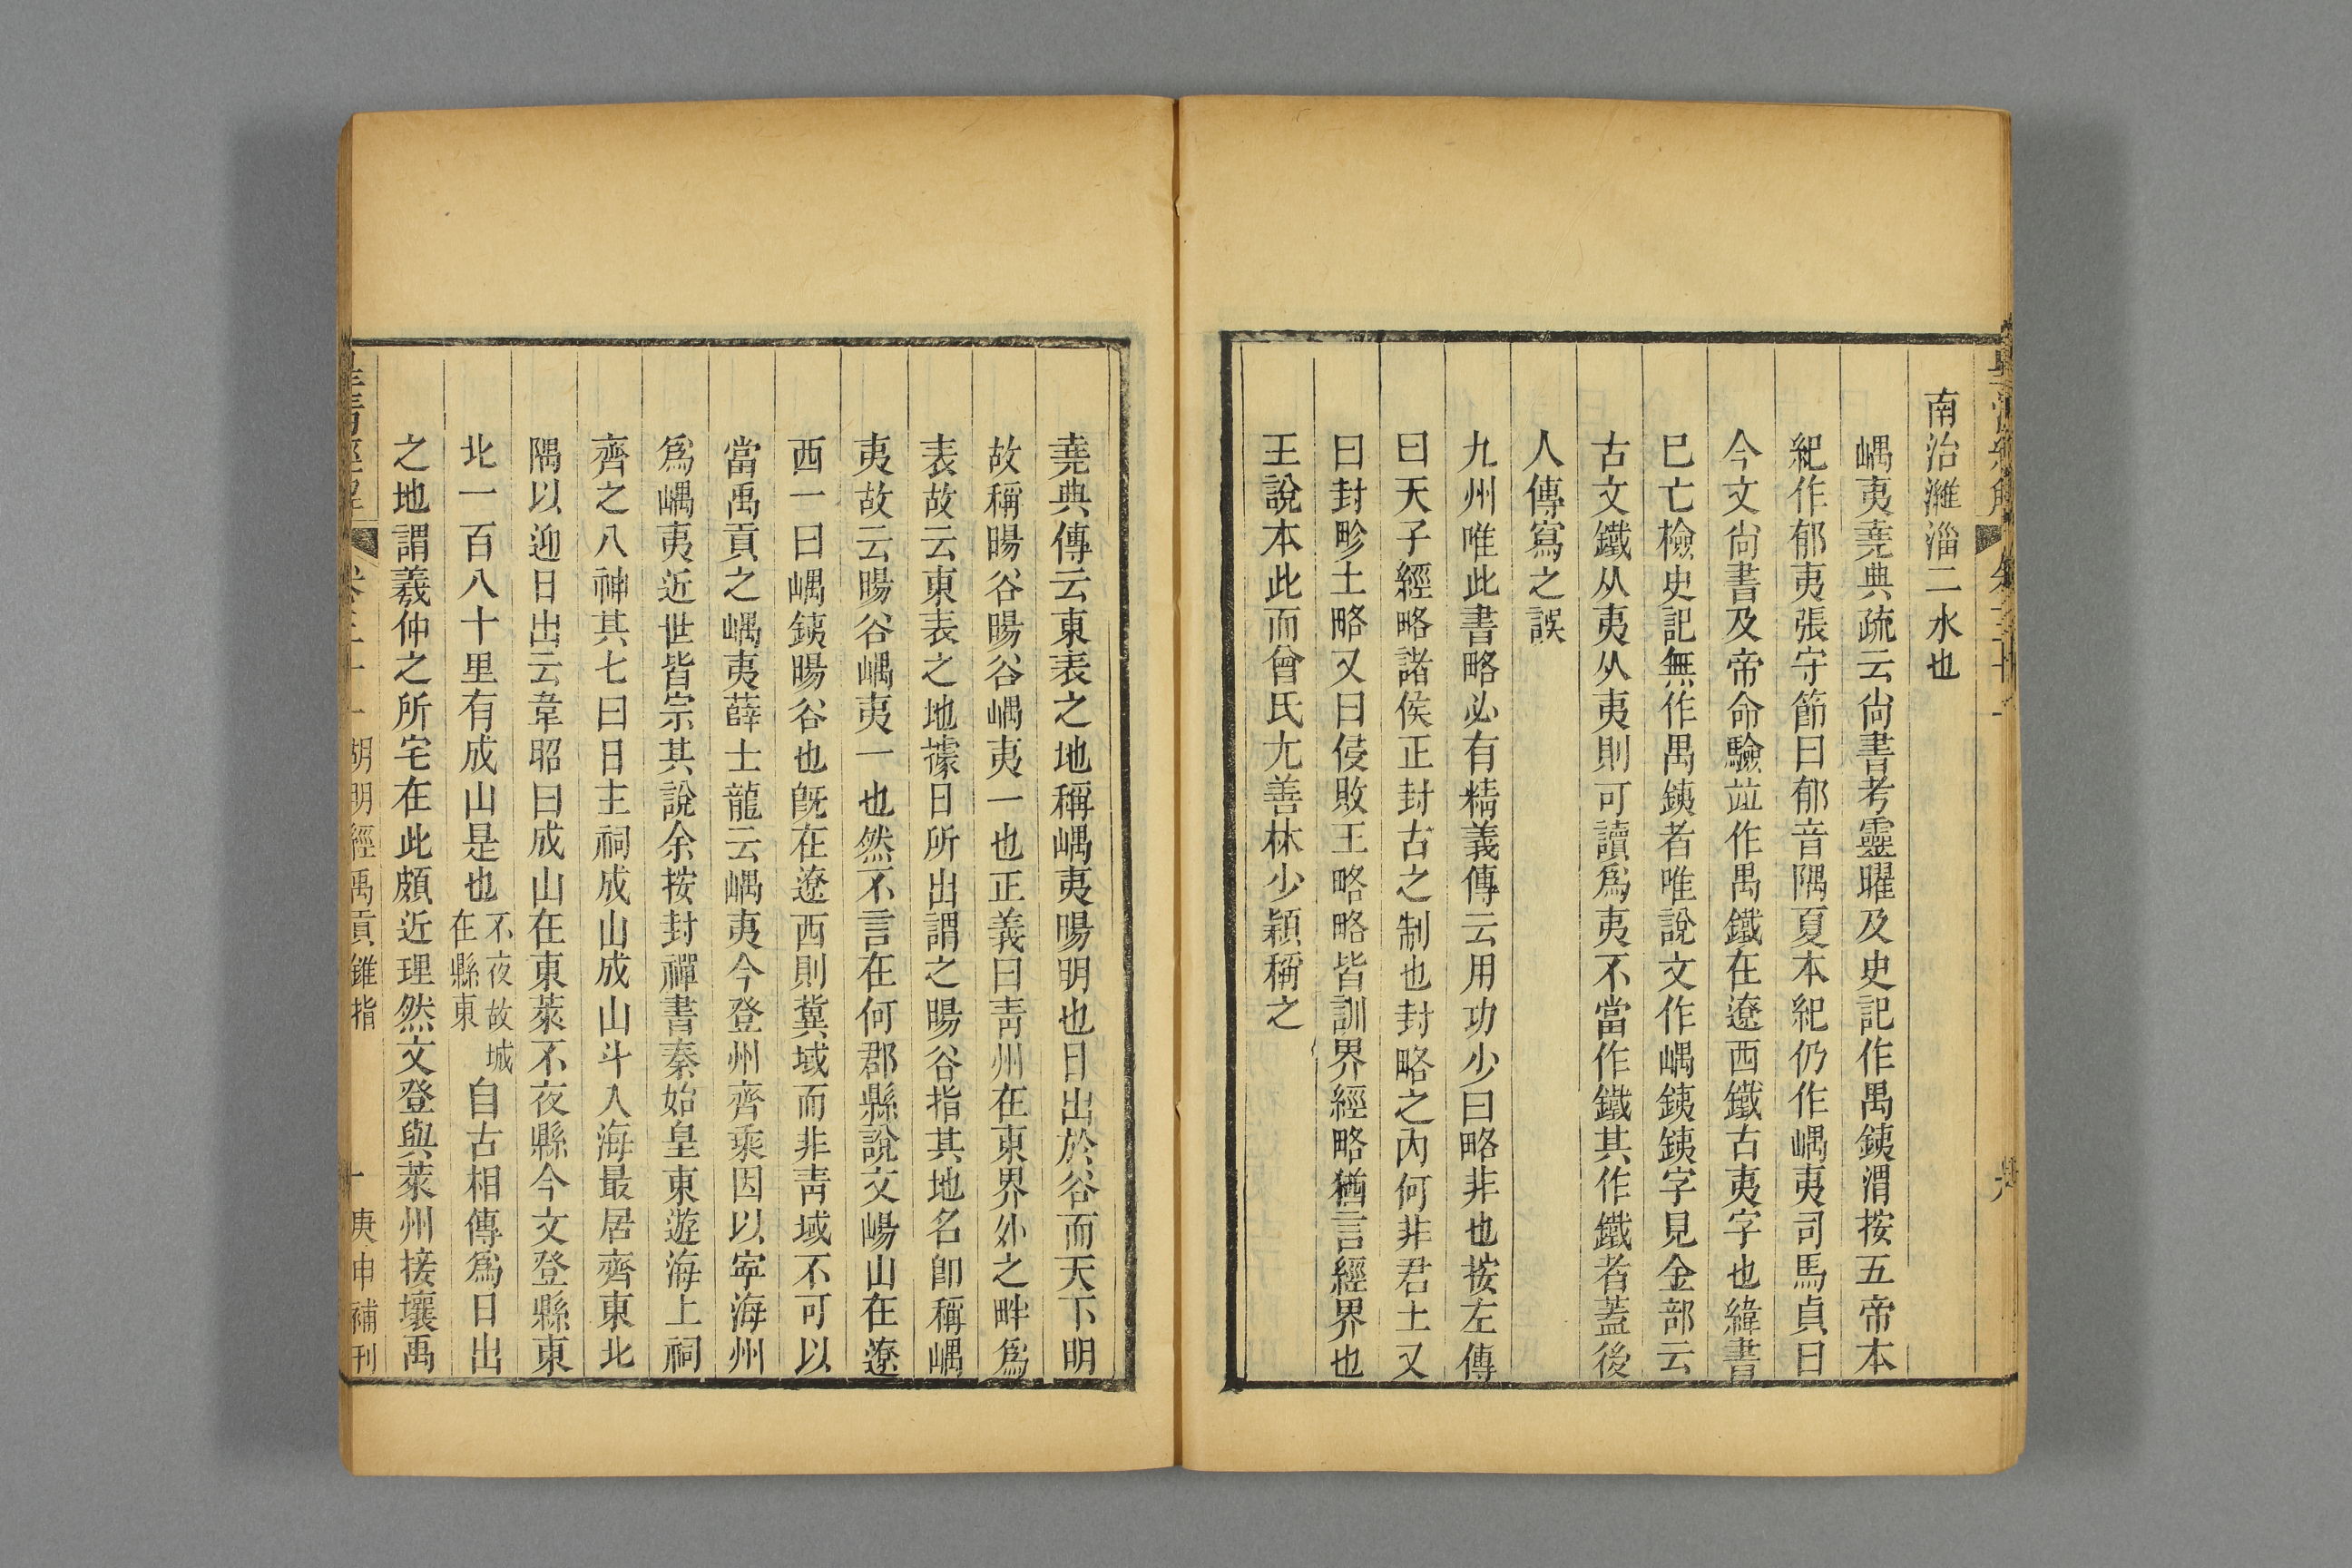 南治濰淄二水也
嵎夷堯典疏云尙書考靈曜及史記作禺銕渭按五帝本
紀作郁夷張守節曰郁音隅夏本紀仍作嵎夷司馬貞曰
今文尙書及帝命驗竝作禺鐵在遼西鐵古夷字也緯書
已亡檢史記無作禺銕者唯說文作嵎銕銕字見金部云
古文鐵从夷从夷則可讀爲夷不當作鐵其作鐵者蓋後
人傳寫之誤
九州唯此書略必有精義傳云用功少曰略非也按左傳
曰天子經略諸侯正封古之制也封略之內何非君土又
曰封畛土略又曰侵敗王略略皆訓界經略猶言經界也
王說本此而曾氏尤善林少穎稱之
堯典傳云東表之地稱嵎夷暘明也日出於谷而天下明
故稱暘谷暘谷嵎夷一也正義曰靑州在東界外之畔爲
表故云東表之地據日所出謂之暘谷指其地名卽稱嵎
夷故云暘谷嵎夷一也然不言在何郡縣說文崵山在遼
西一曰嵎銕暘谷也旣在遼西則冀域而非靑域不可以
當禹貢之嵎夷薛士龍云嵎夷今登州齊乘因以寧海州
爲嵎夷近世皆宗其說余按封禪書秦始皇東遊海上祠
齊之八神其七曰日主祠成山成山斗入海最居齊東北
隅以迎日出云韋昭曰成山在東萊不夜縣今文登縣東
北一百八十里有成山是也不夜故城在縣東自古相傳爲日出
之地謂羲仲之所宅在此頗近理然文登與萊州接壤禹
皇淸經解 卷三十一 胡明經禹貢錐指 庚申補刊